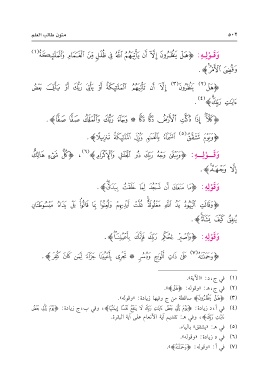 ٥٠٢ متون طالب العلم
وَقَوْلِهِ: ﴿هَلْ يَنظُرُونَ إِلَّا أَن يَأْتِيَهُمُ اللَّهُ فِي ظُلَلٍ مِّنَ الْغَمَامِ وَالْمَلَائِكَةُ(١)
وَقُضِيَ الْأَمْرُ﴾.
﴿هَلْ(٢) يَنظُرُونَ(٣) إِلَّا أَن تَأْتِيَهُمُ الْمَلَائِكَةُ أَوْ يَأْتِيَ رَبُّكَ أَوْ يَأْتِيَ بَعْضُ
آيَاتِ رَبِّكَ﴾(٤).
﴿كَلَّا إِذَا دُكَّتِ الْأَرْضُ دَكًّا دَكًّا * وَجَاءَ رَبُّكَ وَالْمَلَكُ صَفًّا صَفًّا﴾.
﴿وَيَوْمَ تَشَقَّقُ(٥) السَّمَاءُ بِالْغَمَامِ وَنُزِّلَ الْمَلَائِكَةُ تَنزِيلًا﴾.
وَقَوْلِهِ: ﴿وَيَبْقَى وَجْهُ رَبِّكَ ذُو الْجَلَالِ وَالْإِكْرَامِ﴾(٦)، ﴿كُلُّ شَيْءٍ هَالِكٌ
إِلَّا وَجْهَهُ﴾.
وَقَوْلِهِ: ﴿مَا مَنَعَكَ أَن تَسْجُدَ لِمَا خَلَقْتُ بِيَدَيَّ﴾.
﴿وَقَالَتِ الْيَهُودُ يَدُ اللَّهِ مَغْلُولَةٌ غُلَّتْ أَيْدِيهِمْ وَلُعِنُوا بِمَا قَالُوا بَلْ يَدَاهُ مَبْسُوطَتَانِ
يُنفِقُ كَيْفَ يَشَاءُ﴾.
وَقَوْلِهِ: ﴿وَاصْبِرْ لِحُكْمِ رَبِّكَ فَإِنَّكَ بِأَعْيُنِنَا﴾.
﴿وَحَمَلْنَاهُ(٧) عَلَى ذَاتِ أَلْوَاحٍ وَدُسُرٍ * تَجْرِي بِأَعْيُنِنَا جَزَاءً لِّمَن كَانَ كُفِرَ﴾.
(١) في ج، د: «الآية».
(٢) في ج، هـ: «وقوله: ﴿هَلْ﴾».
(٣) ﴿هَلْ يَنظُرُونَ﴾ ساقطة من ج وفيها زيادة: «وقوله».
(٤) في أ، د زيادة: ﴿يَوْمَ يَأْتِي بَعْضُ آيَاتِ رَبِّكَ لَا يَنفَعُ نَفْسًا إِيمَانُهَا﴾، وفي ب، ج زيادة: ﴿يَوْمَ يَأْتِي بَعْضُ
آيَاتِ رَبِّكَ﴾، وفي هـ: تقديم آية الأنعام على آية البقرة.
(٥) في هـ: «يشقق» بالياء.
(٦) في د زيادة: «وقوله».
(٧) في أ: «وقوله: ﴿وَحَمَلْنَاهُ﴾».